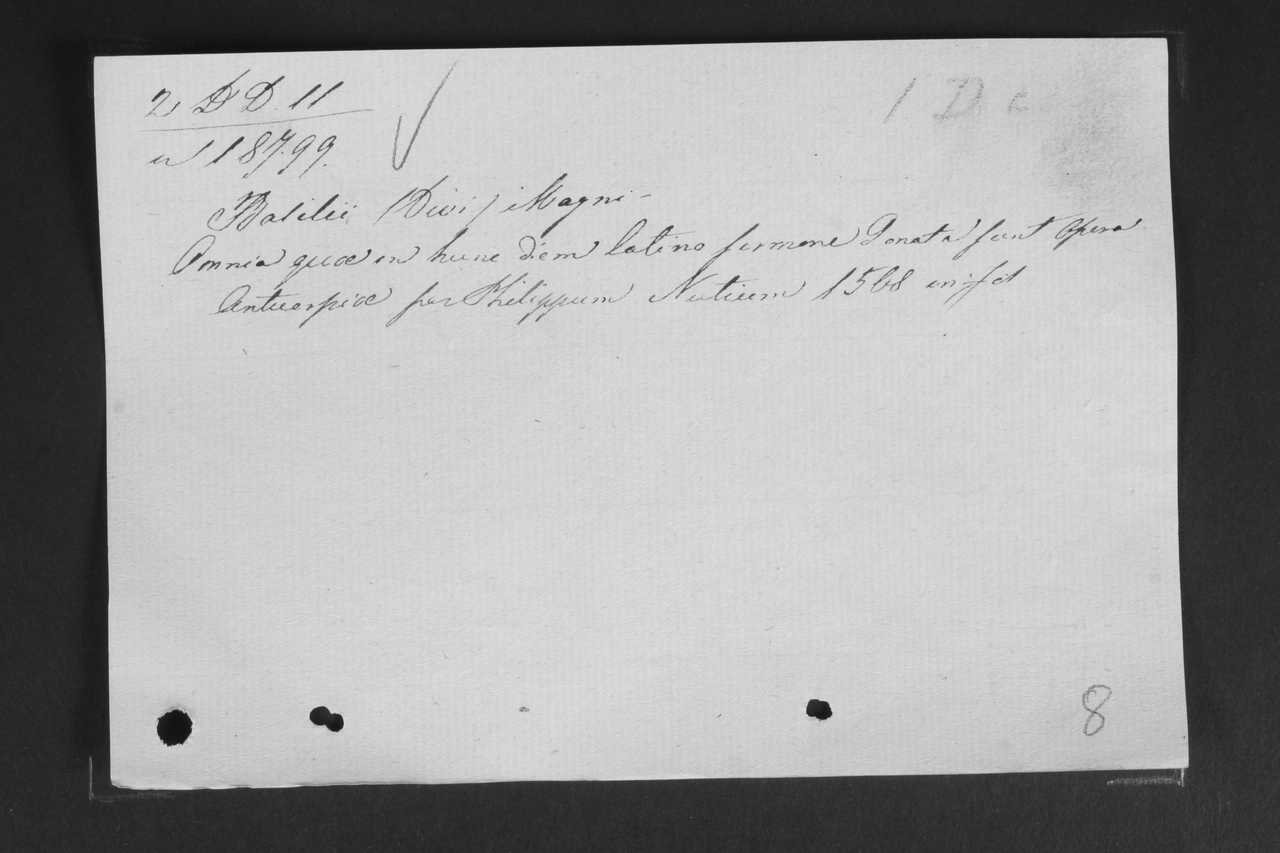 2 D D. 11
1 D c
n 18799.
Basilii (Divi) Magni -
Omnia quæ in hunc diem latino sermone Donata sunt Opera
Antuerpiæ per Philippum Nutium 1568 in fol
8